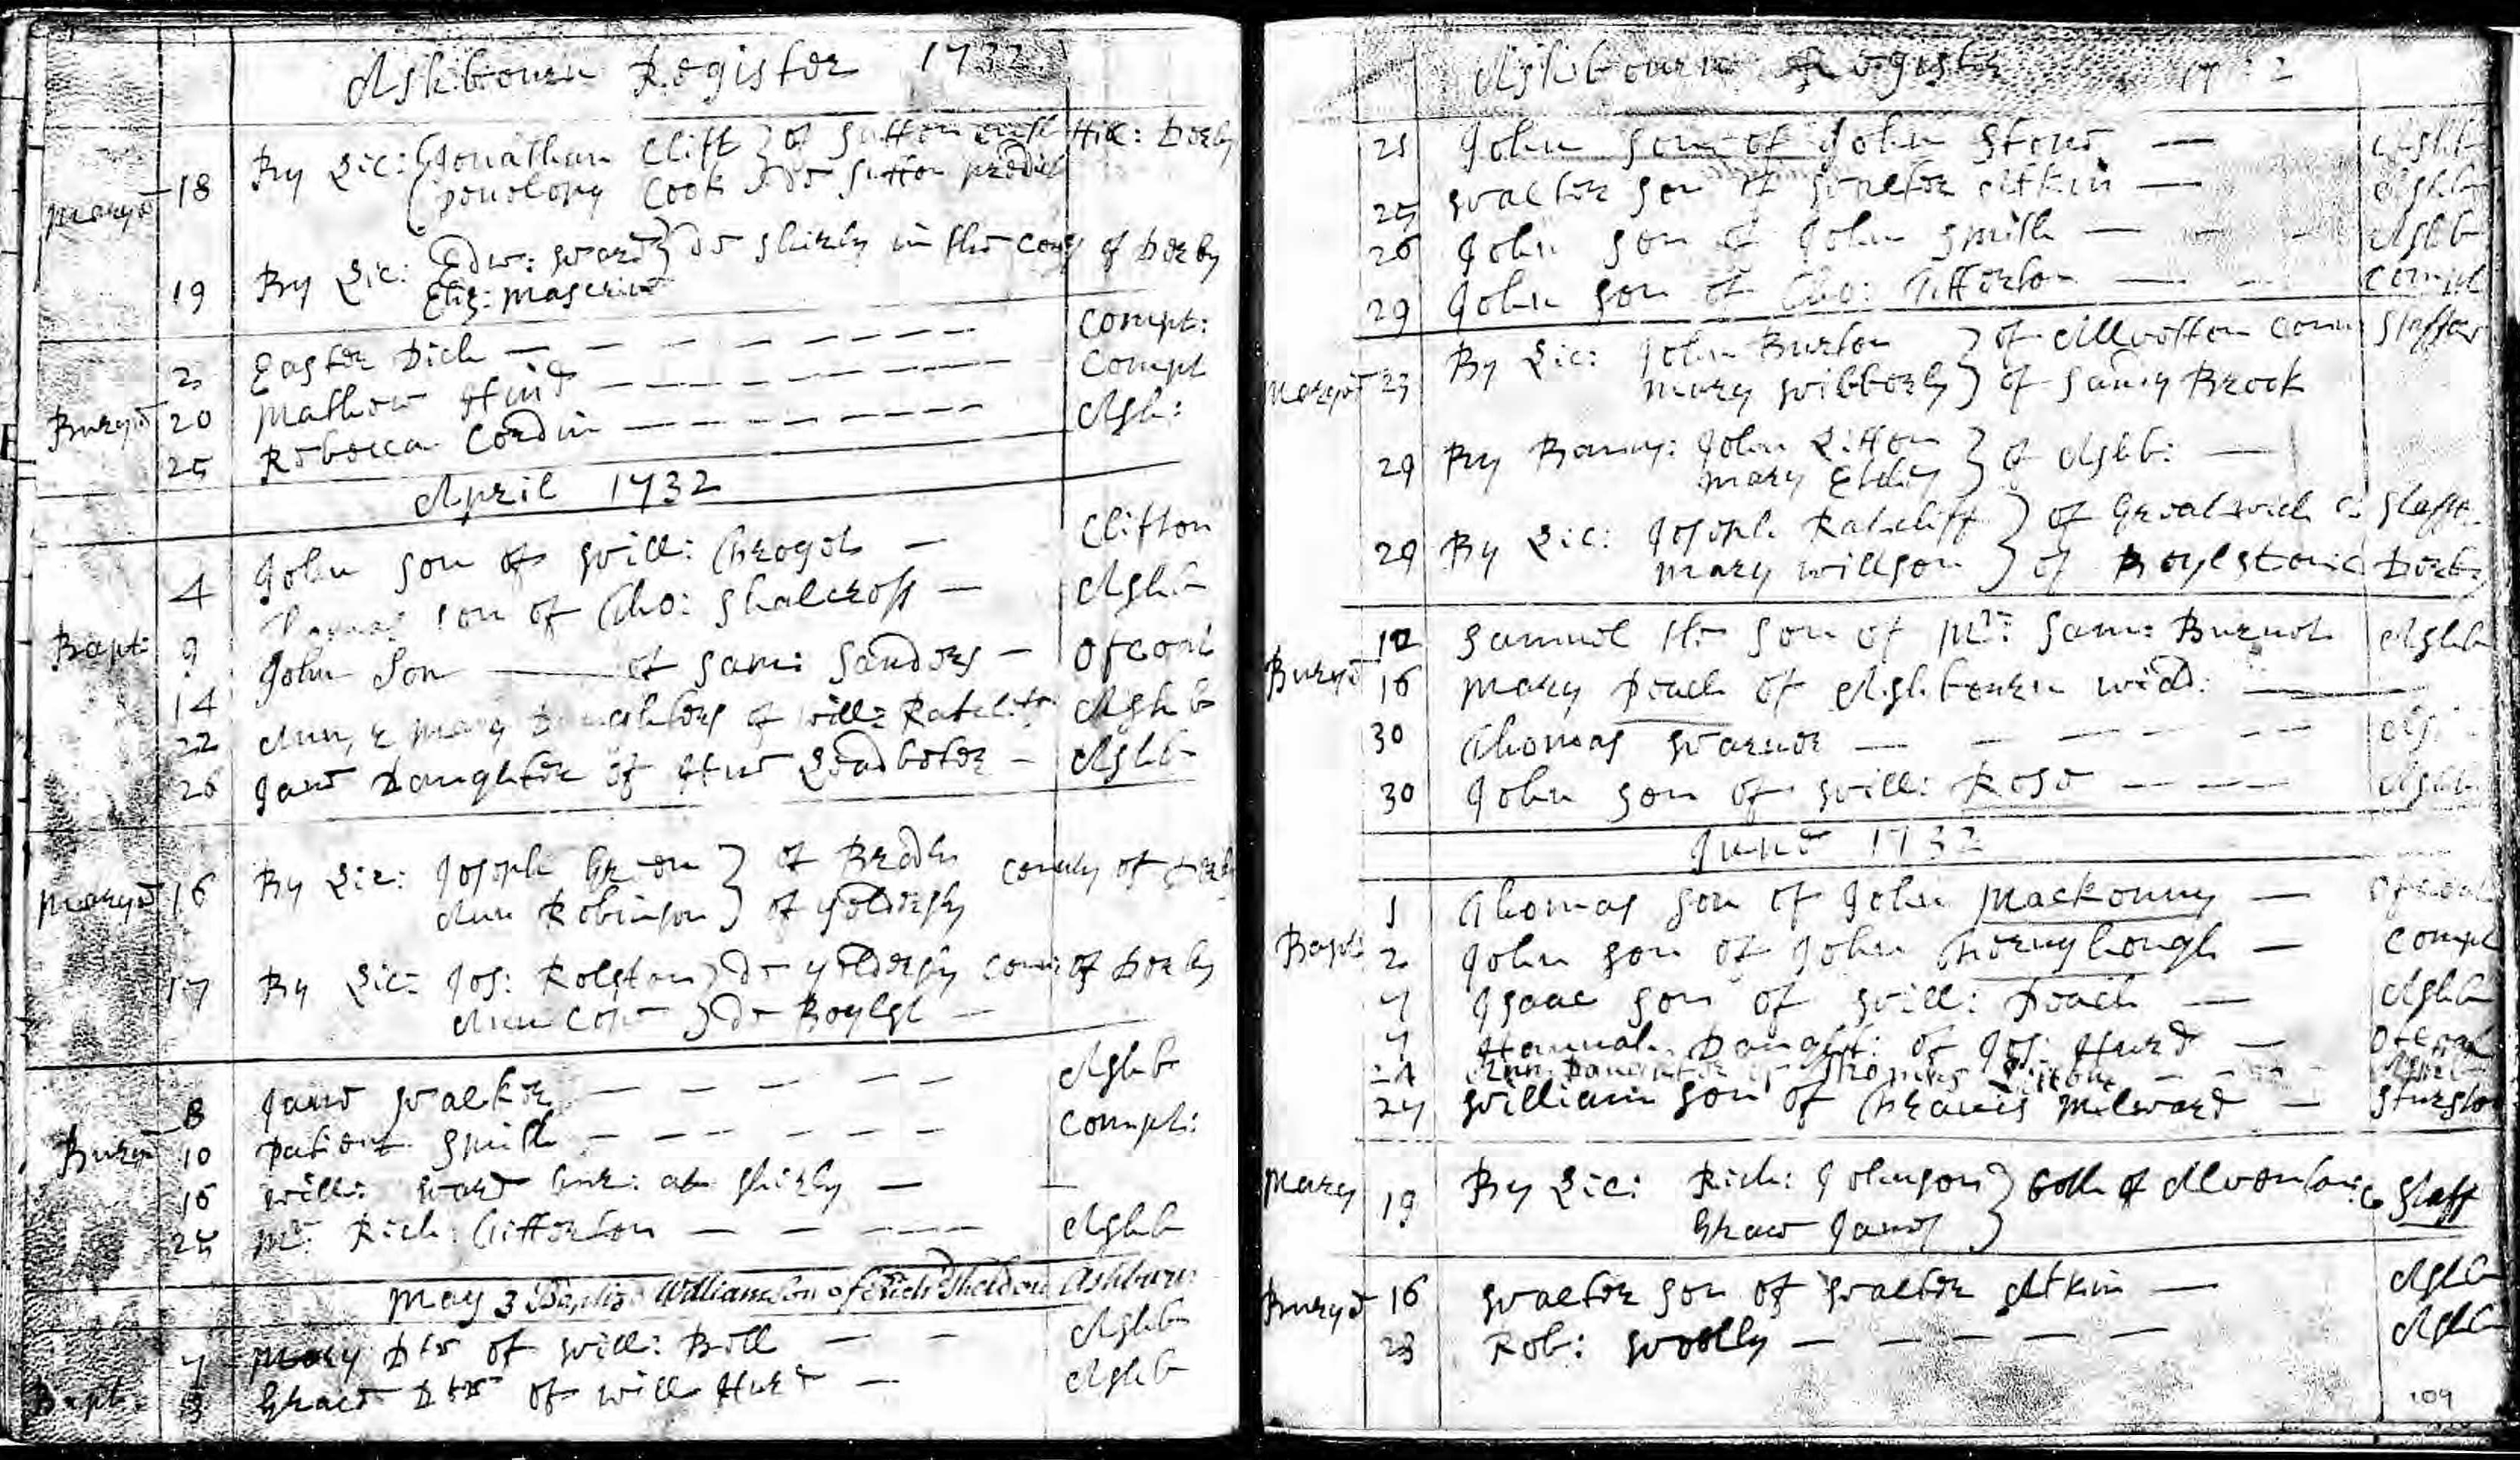 Ashbourn Register 1732
Maryd 18 By Lic: Jonathan Clift } of Sutton Hill: Derby
Penelopy Cook } de Sutton predict
19 By Lic: Edw: Ward } de Shirly in the Coty of Derby
Eliz:
2 Easter Dich — Compt:
Buryd 20 Mathew Hind — Compt
25 Rebecca Cordin — Ash:
April 1732
4 John son of Will: — Clifton
Bapt: 9 son of Tho: Shalcross — Ashb
14 John Son — of Sam: Sanders — Ofcoat
22 Ann, & Mary Daughters of Will: Ratcliff Ashb
26 Jane Daughter of Leadbeter — Ashb
Maryd 16 By Lic: Joseph Green } of Bradly County of Derb
Ann Robinson } of Yeldersly
17 By Lic: Jos: Rolston } de Yeldersly Com: of Derby
Ann Cope } de Boylst —
8 Jane Walker — Ashb
Buryd 10 Patient Smith — Compt:
16 Will: Ward bur: at Shirly —
25 Mr. Rich: Titterton — Ashb
May 3 Baptiz'd William Son of Rich Sheldon Ashburn
7 Mary Dtr of Will: Bill — Ashb
Bapt. Grace Dtr of Will Hurd — Ashb
Ashbourn Register 1732
21 John son of John Stone — Ashb
25 Walter son of Walter Atkin — Ashb
26 John son of John Smith — Ashb
29 John son of Tho: Titterton — Compt
Maryd 23 By Lic: John Burton } of Allvetton Com: Staffor
Mary Wibberly } of Sandy Brook
29 By Banns: John } of Ashb: —
Mary
29 By Lic: Joseph Ratcliff } of Greatwich C: Staffo.
Mary Willson } of Boylstone Derby
12 Samuel the Son of Mr: Sam: Burnet Ashb
Buryd 16 Mary Peach of Ashbourn Wid: —
30 Thomas Warner —
30 John son of Will: Rose — Ashb
June 1732
1 Thomas son of John Mackenny — Ofcoat
Bapt: 2 John son of John Thornyhough — Compt
7 Isaac son of Will: Peach — Ashb
7 Hannah Daught: of Jos: Hurd — Ofcoat
Ann Daughter of Thomas
27 William son of Francis Milward — Sturston
Mary 19 By Lic: Rich: Johnson } both of Staff
Grace Janes }
Buryd 16 Walter son of Walter Atkin — Ashb
23 Rob: Woolly — Ashb
109